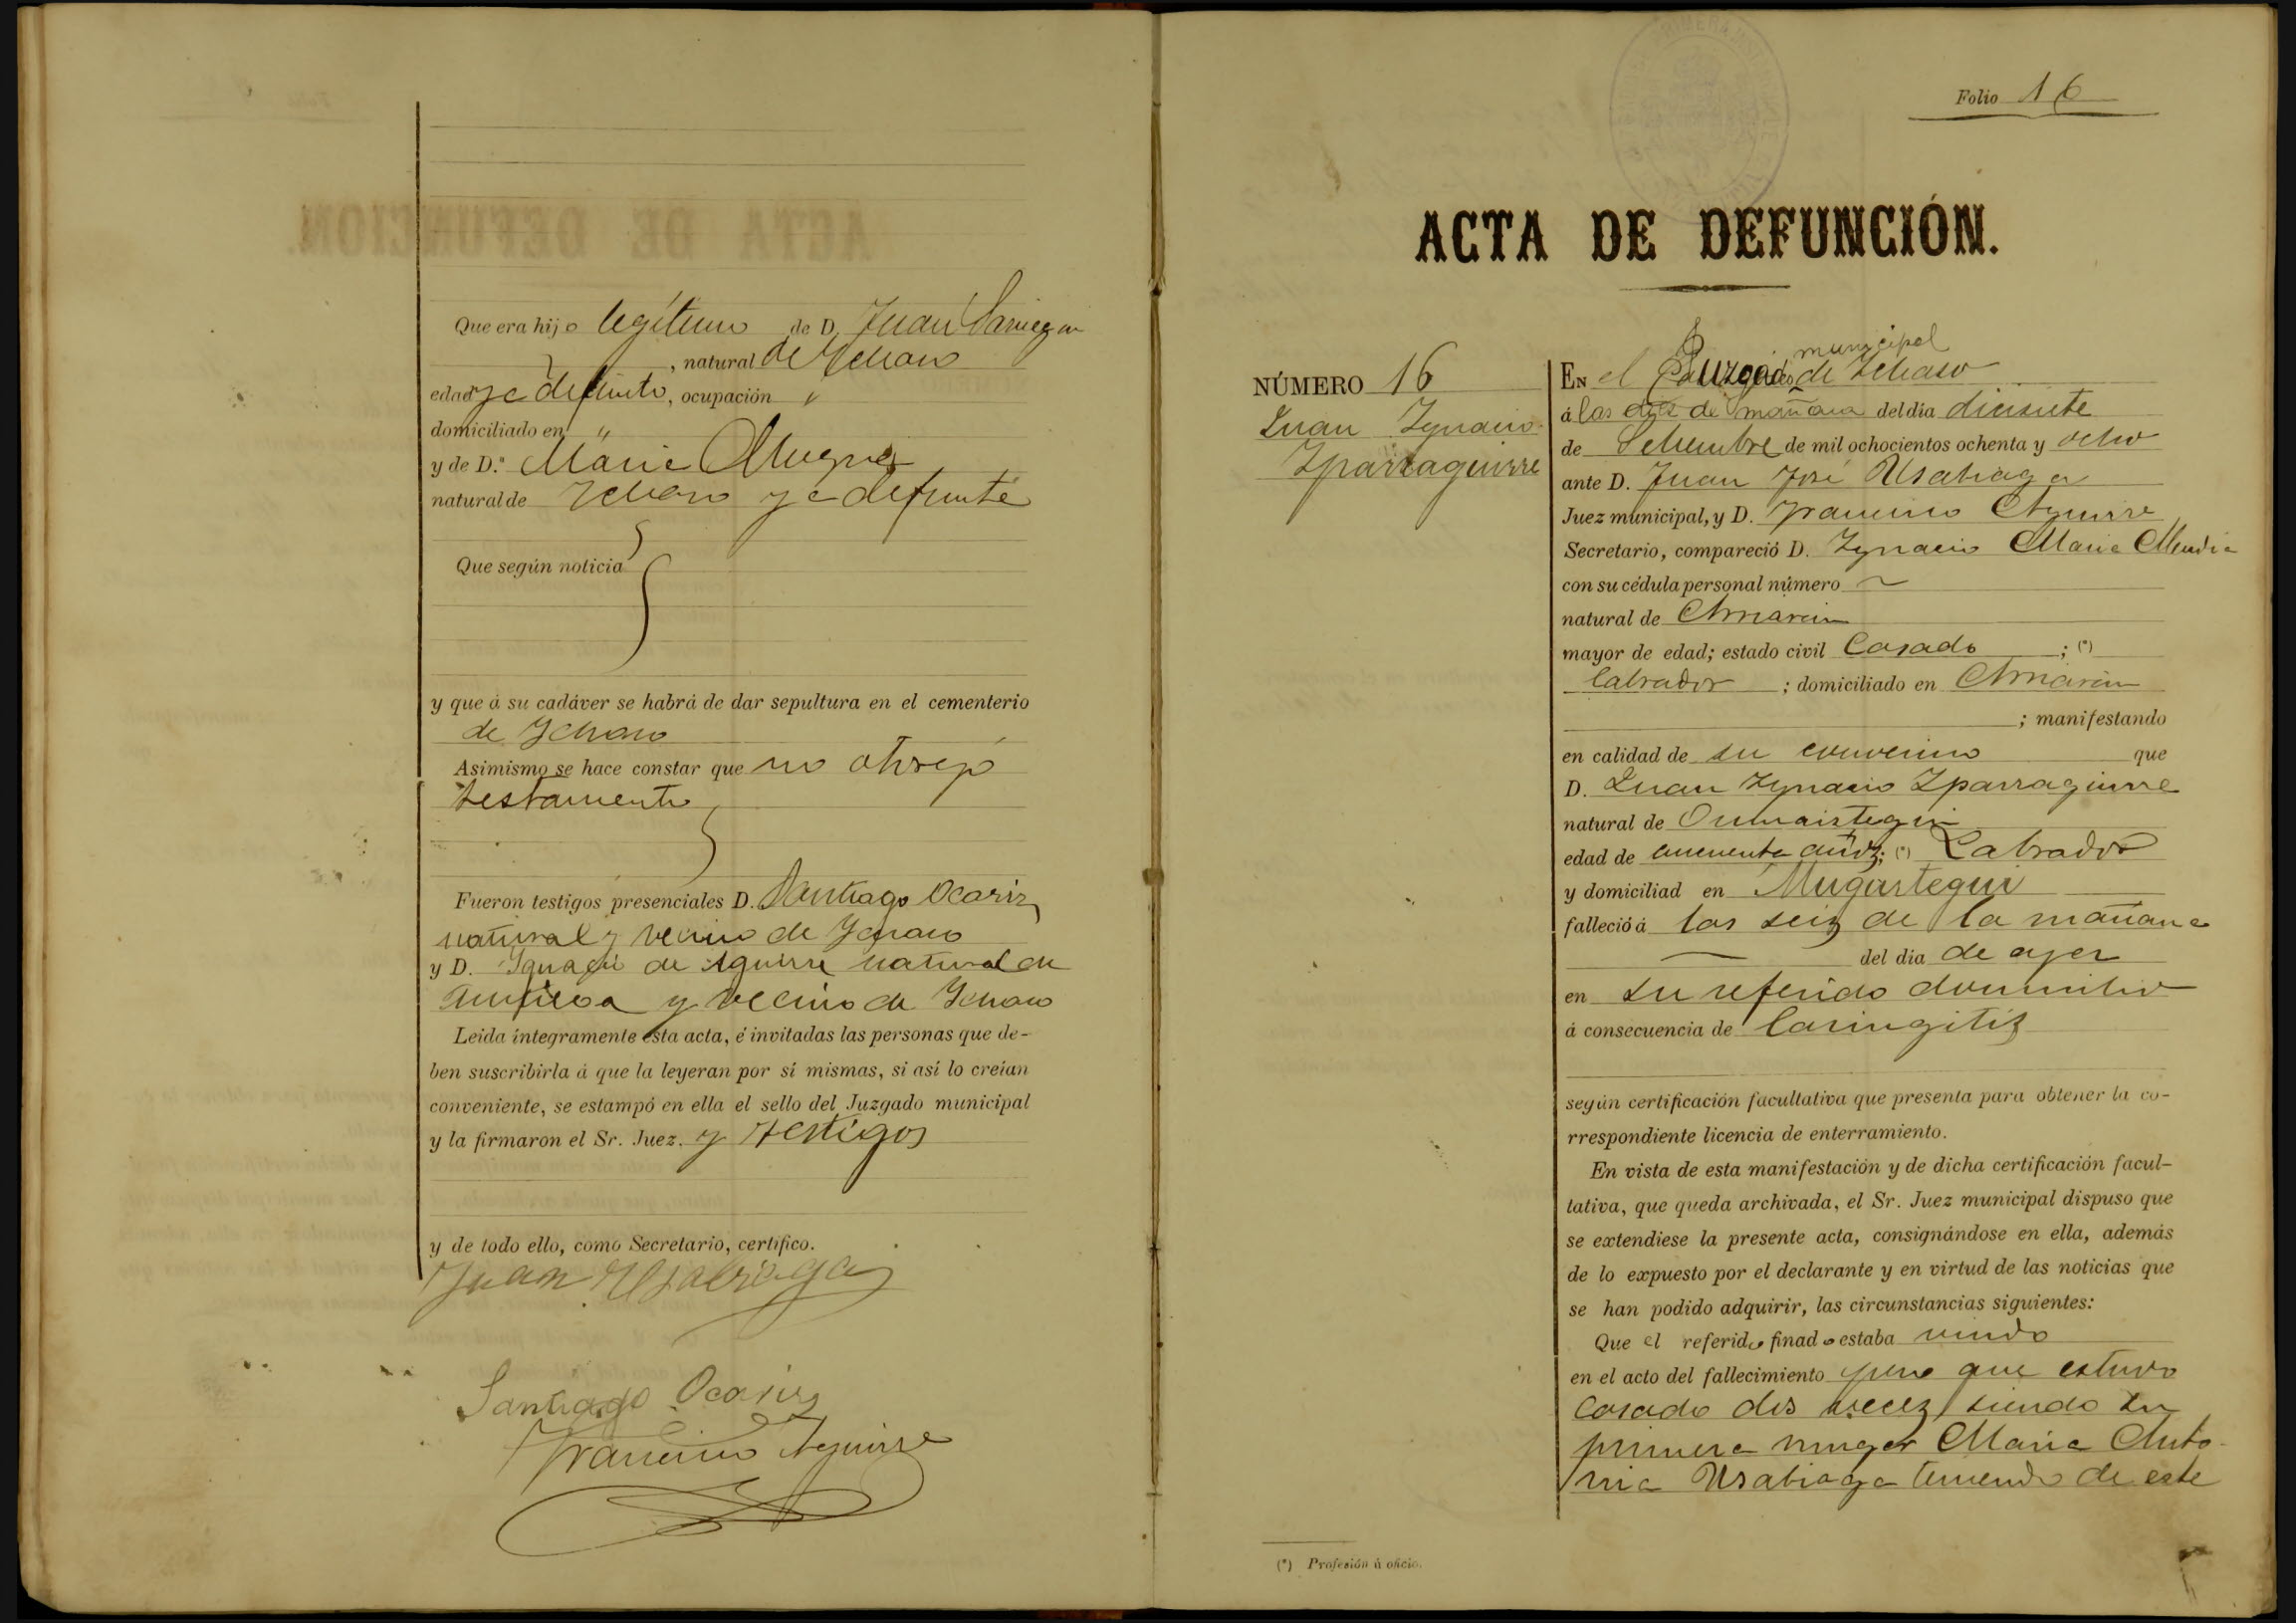 Que era hijo legítimo de D. Juan Sarriegui
, natural de Ichaso
edad ya defunto, ocupación "
domiciliado en "
y de D.ª Maria Mugica
natural de Ichaso ya defunta
Que según noticia
y que á su cadáver se habrá de dar sepultura en el cementerio
de Ichaso
Asimismo se hace constar que no otorgó
testamento
Fueron testigos presenciales D. Santiago Ocariz
natural y vecino de Ichaso
y D. Ignacio de Aguirre natural de
y vecino de Ichaso
Leida íntegramente esta acta, é invitadas las personas que de-
ben suscribirla á que la leyeran por sí mismas, si así lo creían
conveniente, se estampó en ella el sello del Juzgado municipal
y la firmaron el Sr. Juez. y testigos
y de todo ello, como Secretario, certifico.
Juan Usabiaga
Santiago Ocariz
Francisco Aguirre
Folio 16
ACTA DE DEFUNCIÓN.
NÚMERO 16
Juan Ygnacio
Yparraguirre
municipal
EN el Juzgado de Ichaso
á las de mañana del día diesiete
de Setiembre de mil ochocientos ochenta y ocho
ante D. Juan José Usabiaga
Juez municipal, y D. Francisco Aguirre
Secretario, compareció D. Ygnacio Maria Mendia
con su cédula personal número
natural de Arriaran
mayor de edad; estado civil Casado ; (*)
labrador ; domiciliado en Arriaran
; manifestando
en calidad de su convecino que
D. Juan Ygnacio Yparraguirre
natural de Ormaiztegui
edad de cincuenta años; (*) Labrador
y domiciliad en Mugartegui
falleció á las seis de la mañana
del dia de ayer
en su referido domicilio
á consecuencia de laringitis
según certificación facultativa que presenta para obtener la co-
rrespondiente licencia de enterramiento.
En vista de esta manifestación y de dicha certificación facul-
tativa, que queda archivada, el Sr. Juez municipal dispuso que
se extendiese la presente acta, consignándose en ella, además
de lo expuesto por el declarante y en virtud de las noticias que
se han podido adquirir, las circunstancias siguientes:
Que el referido finado estaba viudo
en el acto del fallecimiento pero que estuvo
casado dos veces siendo su
primera muger Maria Anto-
nia Usabiaga teniendo de este
(*) Profesión ú oficio.